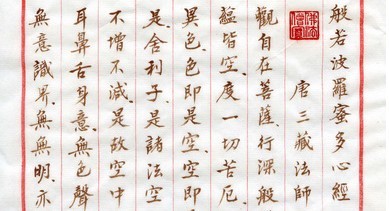 般若波羅蜜多心經
唐三藏法師
觀自在菩薩、行深般
蘊皆空、度一切苦厄、
異色、色即是空、空即
是、舍利子、是諸法空
不增不減、是故空中
耳鼻舌身意、無色聲
無意識界、無無明亦